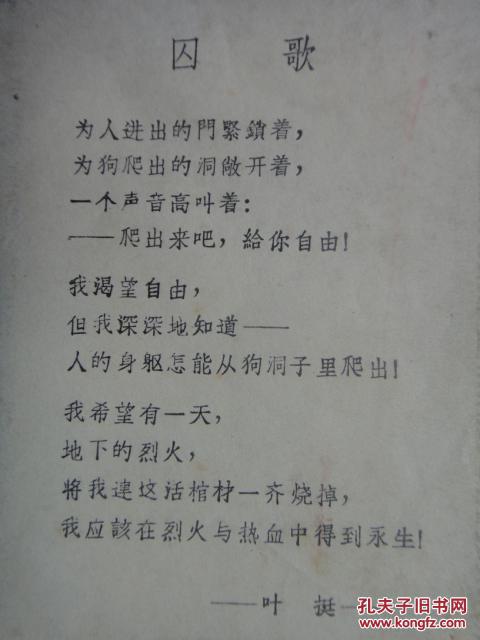 囚 歌
为人进出的門緊鎖着，
为狗爬出的洞敞开着，
一个声音高叫着：
——爬出来吧，給你自由！
我渴望自由，
但我深深地知道——
人的身躯怎能从狗洞子里爬出！
我希望有一天，
地下的烈火，
将我連这活棺材一齐烧掉，
我应該在烈火与热血中得到永生！
——叶 挺——
孔夫子旧书网
kongfz.com